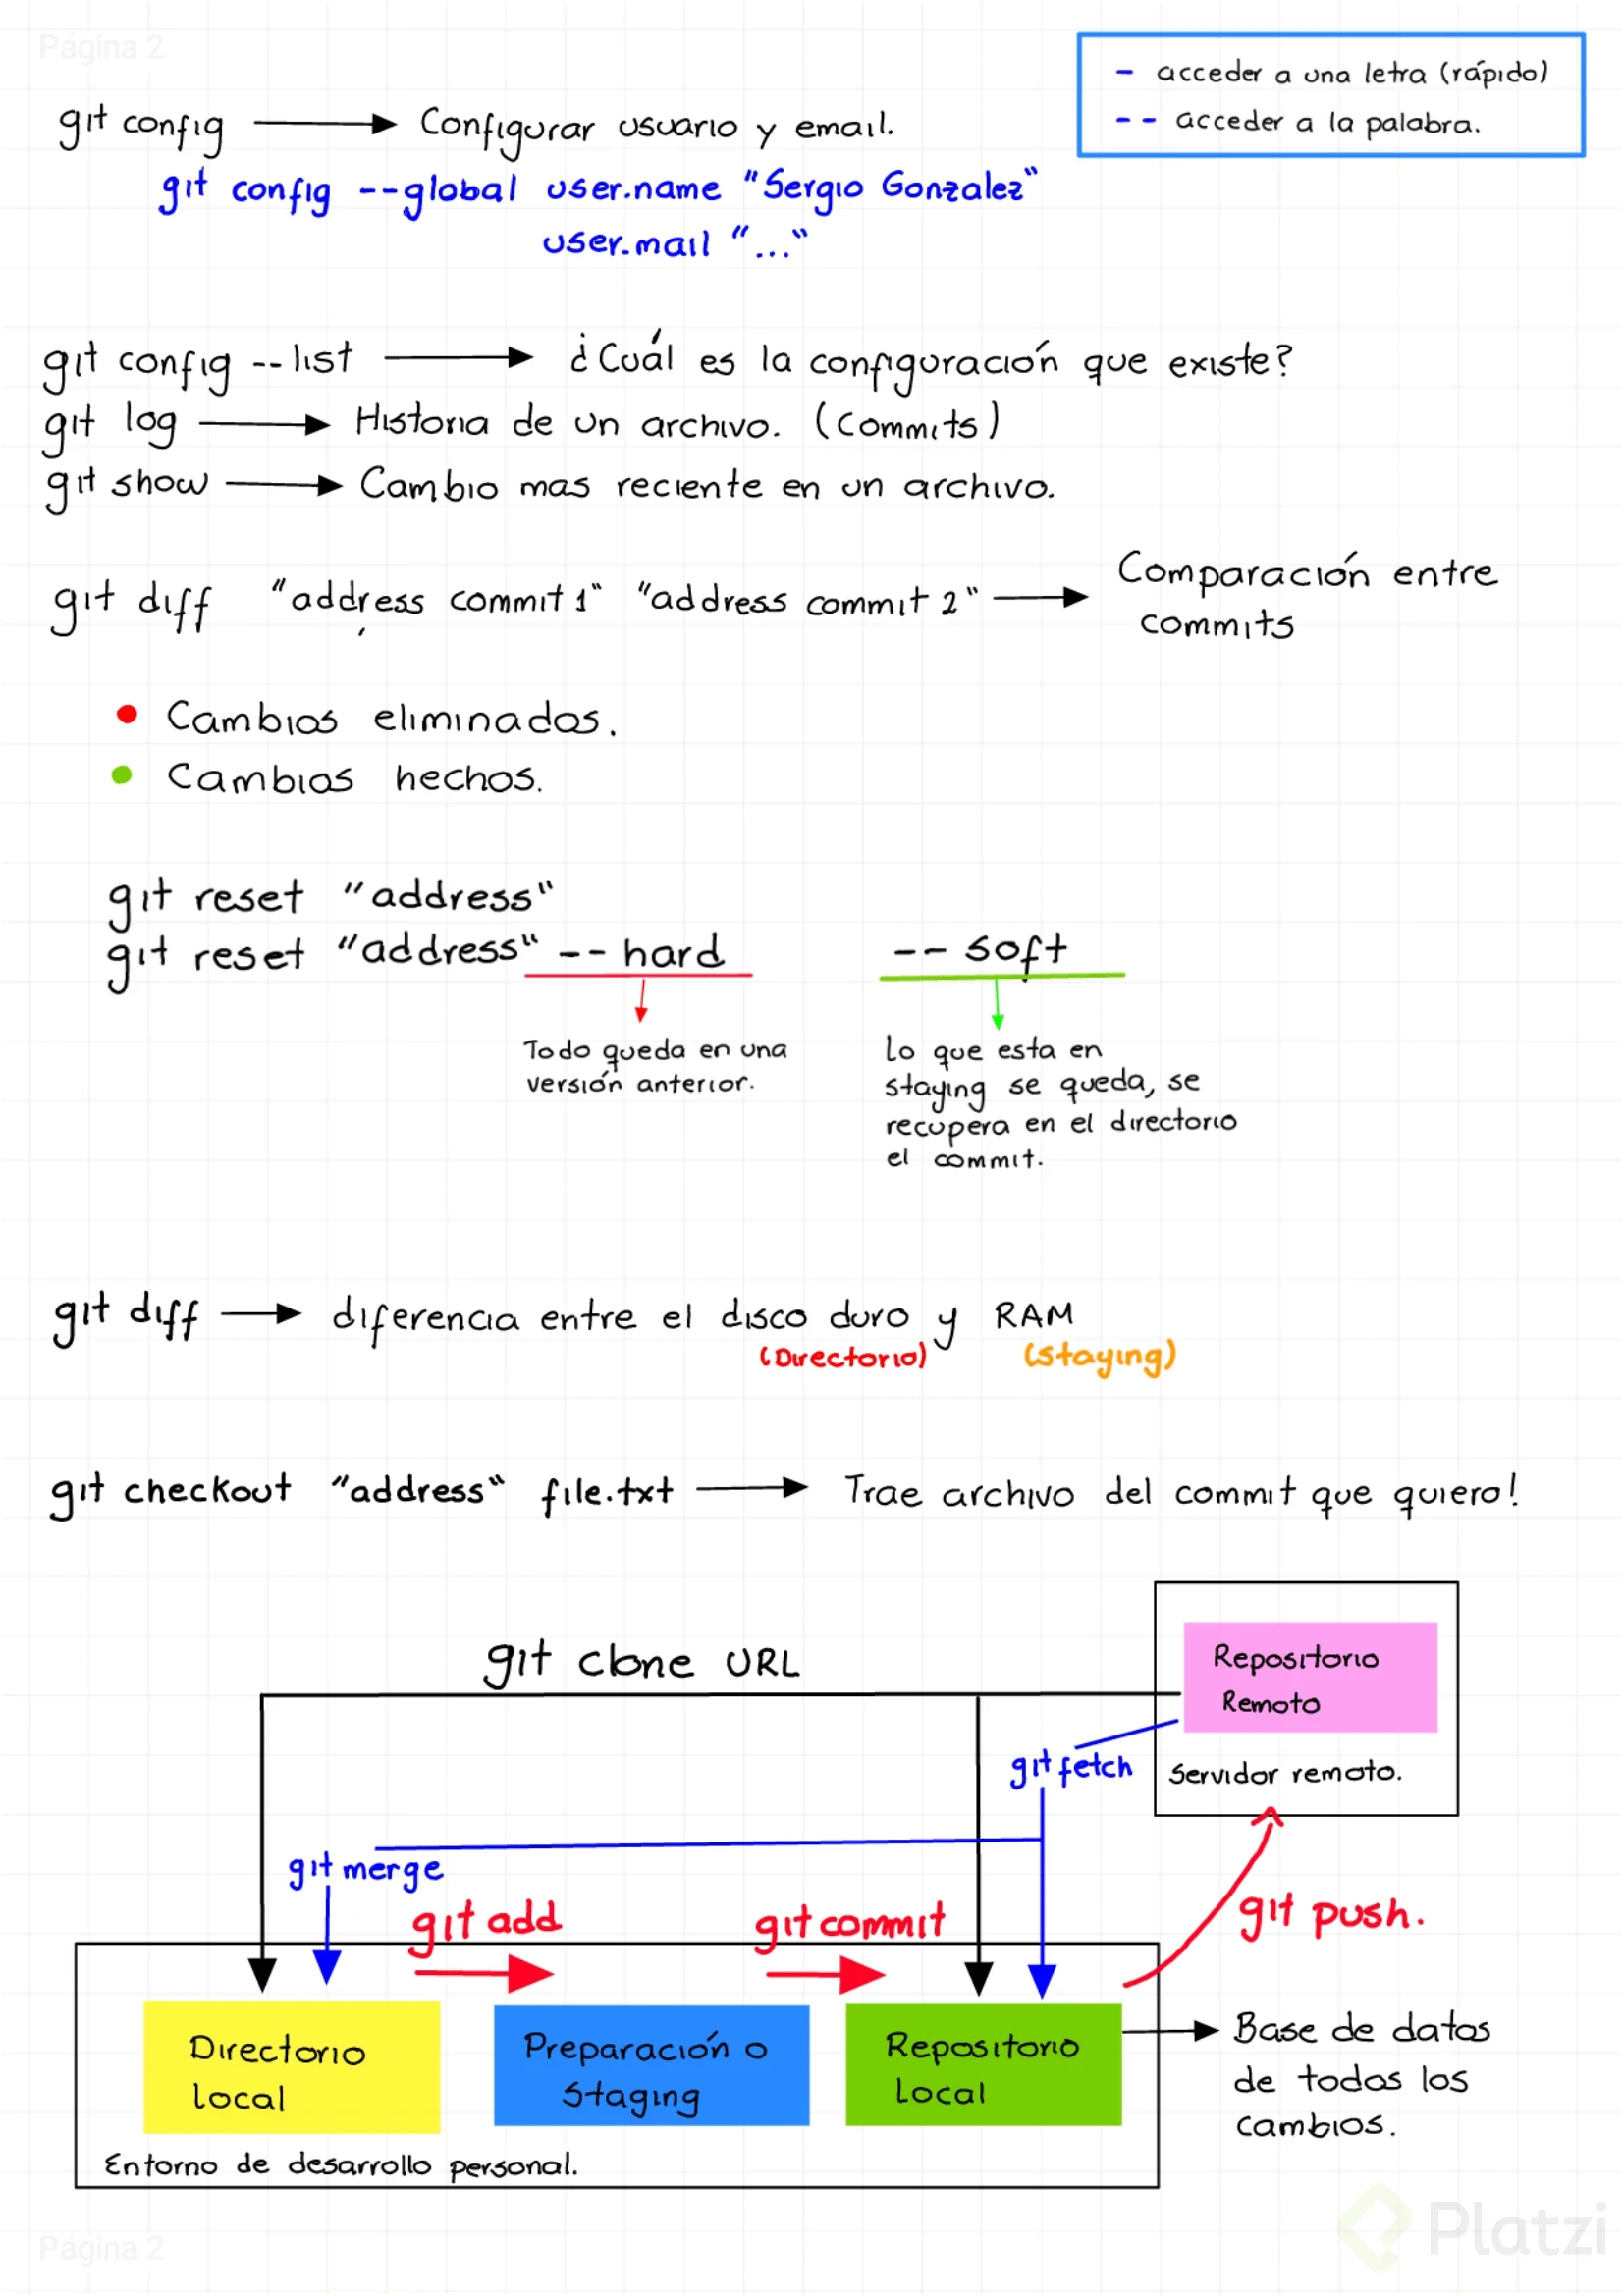 Página 2
- acceder a una letra (rápido)
-- acceder a la palabra.
git config → Configurar usuario y email.
git config --global user.name "Sergio Gonzalez"
user.mail "..."
git config --list → ¿Cuál es la configuración que existe?
git log → Historia de un archivo. (Commits)
git show → Cambio mas reciente en un archivo.
git diff "address commit 1" "address commit 2" → Comparación entre
commits
• Cambios eliminados.
• Cambios hechos.
git reset "address"
git reset "address" --hard -- soft
Todo queda en una
versión anterior.
Lo que esta en
staying se queda, se
recupera en el directorio
el commit.
git diff → diferencia entre el disco duro y RAM
(Directorio) (staying)
git checkout "address" file.txt → Trae archivo del commit que quiero!
git clone URL
Repositorio
Remoto
Servidor remoto.
git fetch
git merge
git add
git commit
git push.
Directorio
local
Preparación o
Staging
Repositorio
Local
Base de datos
de todos los
cambios.
Entorno de desarrollo personal.
Página 2
Platzi